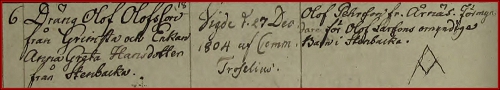 6 Dräng Olof Olofsson
från Grimsta och Enkan
Anna Greta Hansdotter
från Stenbacka.
18
Vigde d. 27 Dec.
1804 af Comm.
Troselius.
Olof Pehrson fr. Årnäs. förmyn-
dare för Olof Larsons omyndiga
Barn i Stenbacka.